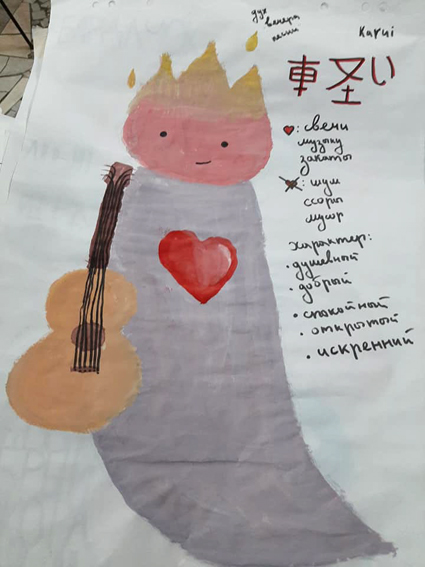 дух
вечера
песни
Karui
軽い
♥: свечи
музыку
закаты
: шум
ссоры
мусор
характер:
• душевный
• добрый
• спокойный
• открытый
• искренний